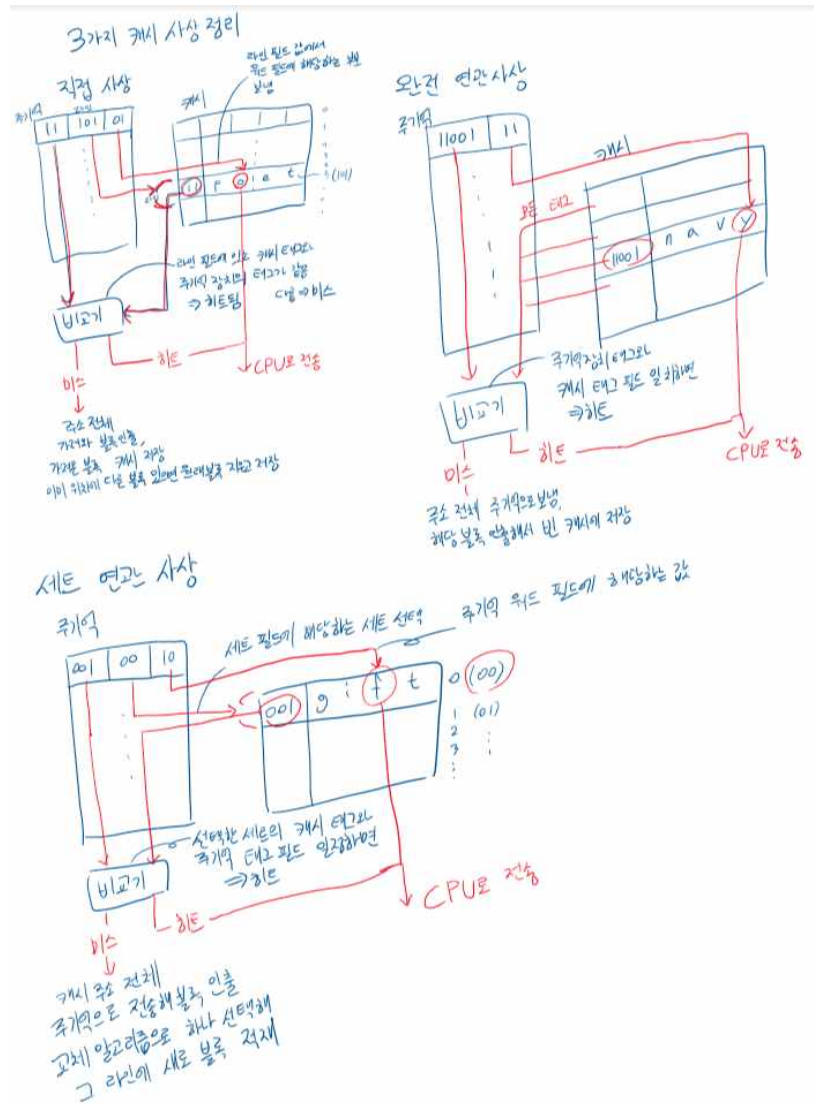 3가지 캐시 사상 정리
직접 사상
주기억
11 101 01
캐시
라인 필드 값에서
워드 필드에 해당하는
보냄
11 r o e t
(101)
라인 필드에 있는 캐시 태그와
주기억 장치의 태그가 같음
⇒ 히트됨 다름 ⇒ 미스
비교기
미스
히트
CPU로 전송
주소 전체
가져와 블록 인출,
가져온 블록 캐시 저장
이미 위치에 다른 블록 있으면 원래블록 지우고 저장
완전 연관사상
주기억
11001 11
캐시
모든 태그
11001 n a v y
비교기
주기억장치 태그와
캐시 태그 필드 일치하면
⇒ 히트
미스
히트
CPU로 전송
주소 전체 주기억으로 보냄,
해당 블록 인출해서 빈 캐시에 저장
세트 연관 사상
주기억
001 00 10
세트 필드에 해당하는 세트 선택
주기억 워드 필드에 해당하는 값
001 g i f t
0 (00)
1 (01)
2
3
선택한 세트의 캐시 태그와
주기억 태그 필드 일정하면
⇒ 히트
비교기
미스
히트
CPU로 전송
캐시 주소 전체
주기억으로 전송해 블록 인출
교체 알고리즘으로 하나 선택해
그 라인에 새로 블록 적재